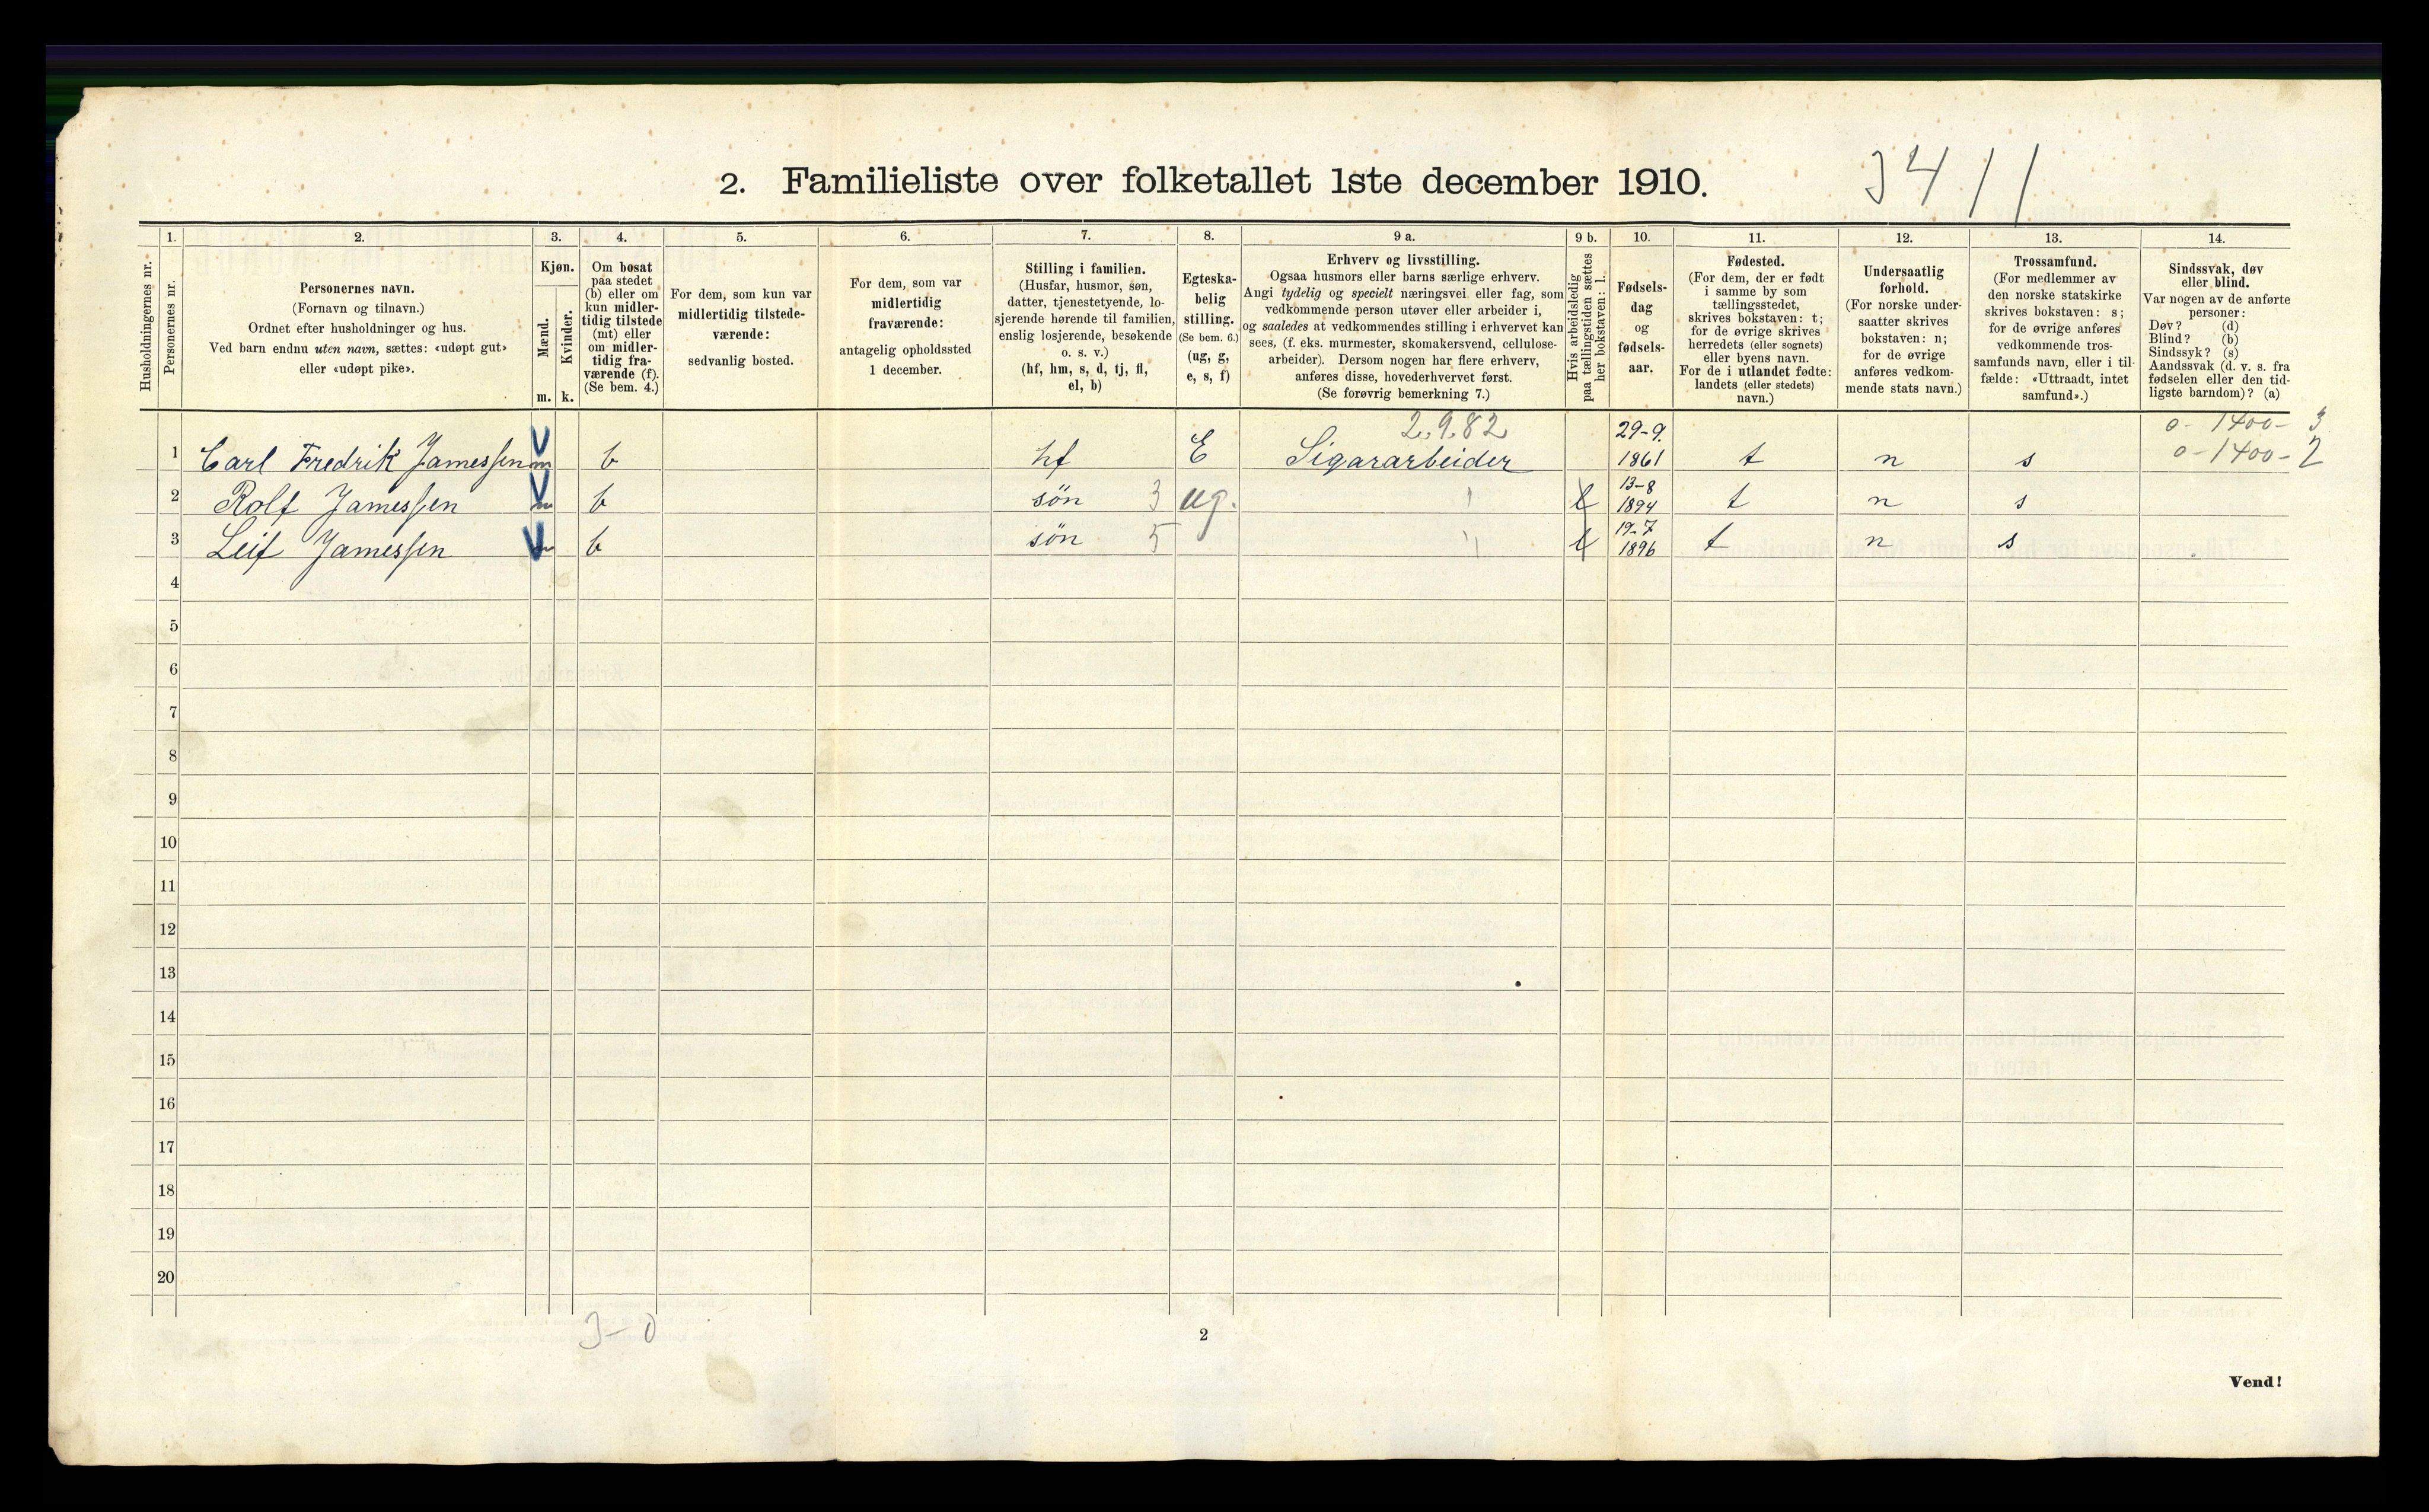 2. Familieliste over folketallet 1ste december 1910.
34 11
Husholdningernes nr.
1.
Personernes nr.
2.
Personernes navn.
(Fornavn og tilnavn.)
Ordnet efter husholdninger og hus.
Ved barn endnu uten navn, sættes: «udøpt gut»
eller «udøpt pike».
3.
Kjøn.
Mænd.
Kvinder.
m. k.
4.
Om bosat
paa stedet
(b) eller om
kun midler-
tidig tilstede
(mt) eller
om midler-
tidig fra-
værende (f).
(Se bem. 4.)
5.
For dem, som kun var
midlertidig tilstede-
værende:
sedvanlig bosted.
6.
For dem, som var
midlertidig
fraværende:
antagelig opholdssted
1 december.
7.
Stilling i familien.
(Husfar, husmor, søn,
datter, tjenestetyende, lo-
sjerende hørende til familien,
enslig losjerende, besøkende
o. s. v.)
(hf, hm, s, d, tj, fl,
el, b)
8.
Egteska-
belig
stilling.
(Se bem. 6.)
(ug, g,
e, s, f)
9 a.
Erhverv og livsstilling.
Ogsaa husmors eller barns særlige erhverv.
Angi tydelig og specielt næringsvei eller fag, som
vedkommende person utøver eller arbeider i,
og saaledes at vedkommendes stilling i erhvervet kan
sees, (f. eks. murmester, skomakersvend, cellulose-
arbeider). Dersom nogen har flere erhverv,
anføres disse, hovederhvervet først.
(Se forøvrig bemerkning 7.)
9 b.
Hvis arbeidsledig
paa tællingstiden sættes
her bokstaven: l.
10.
Fødsels-
dag
og
fødsels-
aar.
11.
Fødested.
(For dem, der er født
i samme by som
tællingsstedet,
skrives bokstaven: t;
for de øvrige skrives
herredets (eller sognets)
eller byens navn.
For de i utlandet fødte:
landets (eller stedets)
navn.)
12.
Undersaatlig
forhold.
(For norske under-
saatter skrives
bokstaven: n;
for de øvrige
anføres vedkom-
mende stats navn.)
13.
Trossamfund.
(For medlemmer av
den norske statskirke
skrives bokstaven: s;
for de øvrige anføres
vedkommende tros-
samfunds navn, eller i til-
fælde: «Uttraadt, intet
samfund».)
14.
Sindssvak, døv
eller blind.
Var nogen av de anførte
personer:
Døv? (d)
Blind? (b)
Sindssyk? (s)
Aandssvak (d. v. s. fra
fødselen eller den tid-
ligste barndom)? (a)
2.9.82 29-9. 0-1400-3
1 Carl Fredrik Jamessen m b hf E Sigararbeider 1861 t n s 0-1400-2
13-8
2 Rolf Jamessen m b søn 3 ug. l 1894 t n s
19-7
3 Leif Jamessen m b søn 5 l 1896 t n s
4
5
6
7
8
9
10
11
12
13
14
15
16
17
18
19
20
3-0
2
Vend!